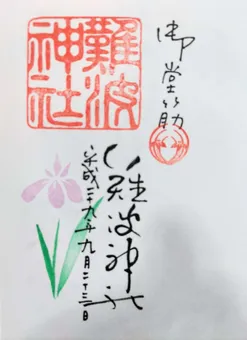 御堂筋
難波
神社
難波神社
平成二十九年九月二十三日